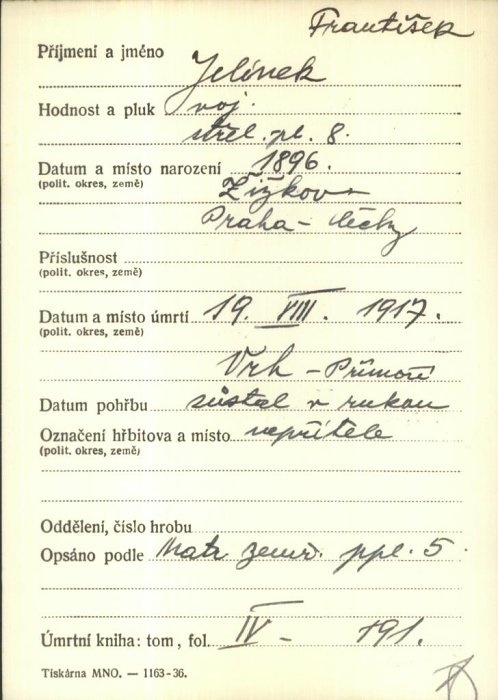 František
Příjmení a jméno Jelínek
Hodnost a pluk voj.
střel. pl. 8.
Datum a místo narození 1896.
(polit. okres, země) Žižkov
Praha - Čechy
Příslušnost
(polit. okres, země)
Datum a místo úmrtí 19. VIII. 1917.
(polit. okres, země)
Vrh - Přímoří
Datum pohřbu zůstal v rukou
Označení hřbitova a místo nepřítele
(polit. okres, země)
Oddělení, číslo hrobu
Opsáno podle Matr. zemř. ppl. 5.
Úmrtní kniha: tom, fol. IV - 191.
Tiskárna MNO. — 1163-36.